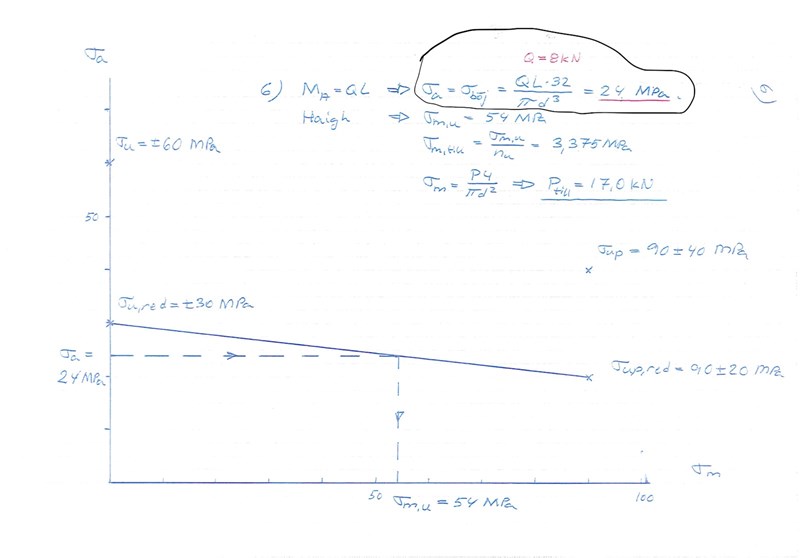 σa
Q=8kN
6) MA = QL ⇒ σa = σböj = QL·32/πd³ = 24 MPa.
Haigh ⇒ σm,u = 54 MPa
σu = ±60 MPa
σm,till = σm,u/nu = 3,375 MPa
σm = P4/πd² ⇒ Ptill = 17,0 kN
50
σup = 90 ± 40 MPa
σu,red = ±30 MPa
σa =
24 MPa
σup,red = 90 ± 20 MPa
σm
50 σm,u = 54 MPa 100